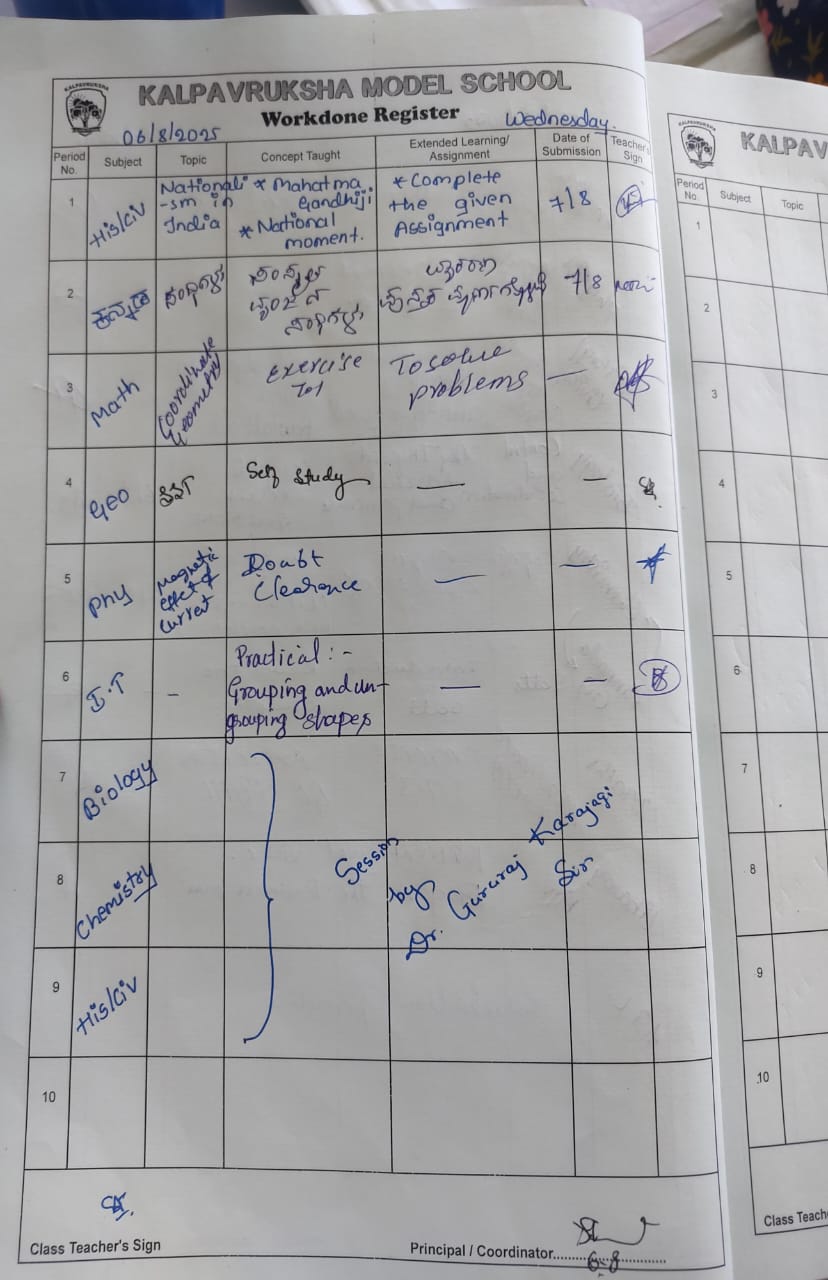 KALPAVRUKSHA MODEL SCHOOL
Workdone Register
06/8/2025
Wednesday.
Period No.
Subject
Topic
Concept Taught
Extended Learning/ Assignment
Date of Submission
Teacher's Sign
1
His/Civ
Nationali
-sm in
India
* Mahatma
Gandhiji
* National
moment.
* Complete
the given
Assignment
7/8
2
ಕನ್ನಡ
ಸಂಧಿಗಳು
ಸಂಸ್ಕೃತ
ವ್ಯಂಜನ
ಸಂಧಿಗಳು
ವ್ಯಾಕರಣ
ಪುಸ್ತಕ
7/8
3
Math
Coordinate
Geometry
Exercise
To solve
problems
—
4
Geo
SST
Self study
—
—
5
Phy
Magnetic
effect of
current
Doubt
Clearance
—
—
6
I.T
-
Practical :-
Grouping and un-
grouping shapes
—
—
7
Biology
8
Chemistry
9
His/Civ
Session
by
Dr. Gururaj Karajagi
Sir
10
Class Teacher's Sign
Principal / Coordinator
6-8
KALPAV
Period No.
Subject
Topic
1
2
3
4
5
6
7
8
9
10
Class Teach